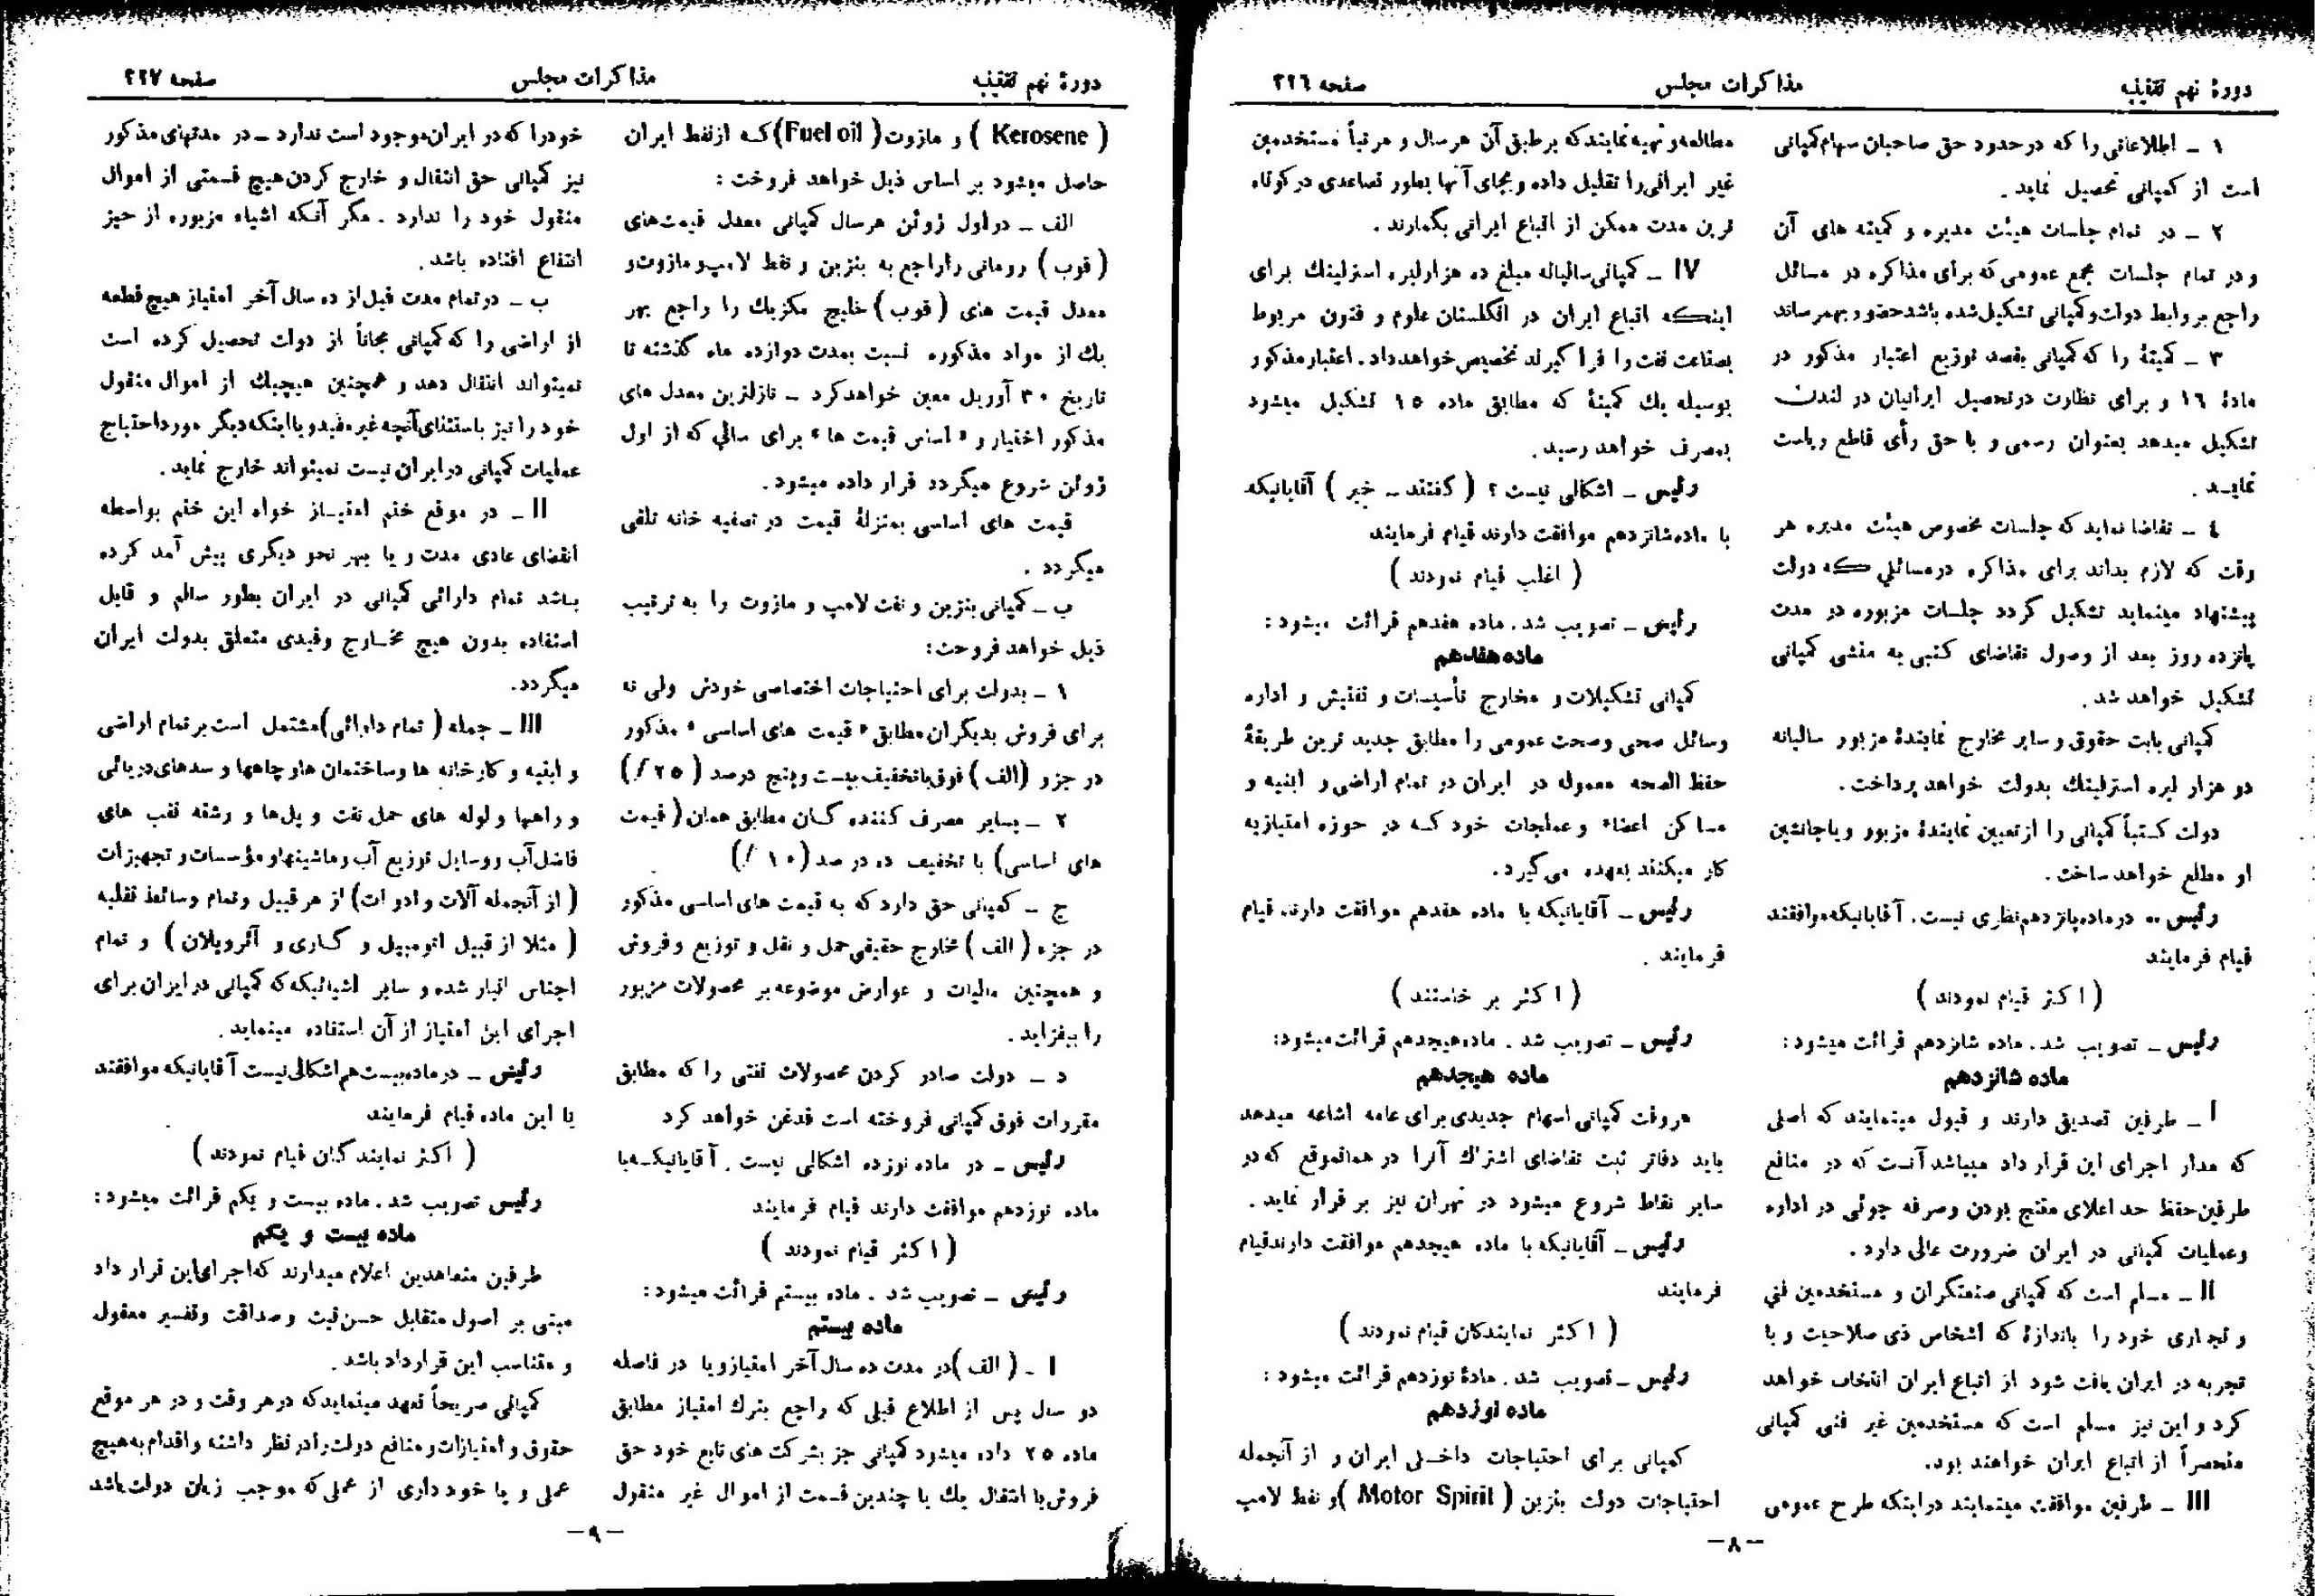 دورهٔ نهم تقنینیه
مذاکرات مجلس
صفحه ۲۲۶
۱ ـ اطلاعاتی را که در حدود حق صاحبان سهام کمپانی
است از کمپانی تحصیل نماید .
۲ ـ در تمام جلسات هیئت مدیره و کمیته های آن
و در تمام جلسات مجمع عمومی که برای مذاکره در مسائل
راجع بروابط دولت و کمپانی تشکیل شده باشد حضور بهمرساند
۳ ـ کمیتهٔ را که کمپانی بقصد توزیع اعتبار مذکور در
مادهٔ ۱۶ و برای نظارت در تحصیل ایرانیان در لندن
تشکیل میدهد بعنوان رسمی و با حق رأی قاطع ریاست
نماید .
٤ ـ تقاضا نماید که جلسات مخصوص هیئت مدیره هر
وقت که لازم بداند برای مذاکره در مسائلی که دولت
پیشنهاد مینماید تشکیل گردد جلسات مزبوره در مدت
پانزده روز بعد از وصول تقاضای کتبی به منشی کمپانی
تشکیل خواهد شد .
کمپانی بابت حقوق و سایر مخارج نمایندهٔ مزبور سالیانه
دو هزار لیره استرلینك بدولت خواهد پرداخت .
دولت کتباً کمپانی را از تعیین نمایندهٔ مزبور و یا جانشین
او مطلع خواهد ساخت .
رئیس ـ در ماده پانزدهم نظری نیست . آقایانیکه موافقند
قیام فرمایند
( اکثر قیام نمودند )
رئیس ـ تصویب شد . ماده شانزدهم قرائت میشود :
ماده شانزدهم
I ـ طرفین تصدیق دارند و قبول مینمایند که اصلی
که مدار اجرای این قرار داد میباشد آنست که در منافع
طرفین حفظ حد اعلای منتج بودن و صرفه جوئی در اداره
و عملیات کمپانی در ایران ضرورت عالی دارد .
II ـ مسلم است که کمپانی صنعتگران و مستخدمین فنی
و تجاری خود را باندازهٔ که اشخاص ذی صلاحیت و با
تجربه در ایران یافت شود از اتباع ایران انتخاب خواهد
کرد و این نیز مسلم است که مستخدمین غیر فنی کمپانی
منحصراً از اتباع ایران خواهند بود.
III ـ طرفین موافقت مینمایند در اینکه طرح عمومی
مطالعه و تهیه نمایند که بر طبق آن هر سال و مرتباً مستخدمین
غیر ایرانی را تقلیل داده و بجای آنها بطور تصاعدی در کوتاه
ترین مدت ممکن از اتباع ایرانی بگمارند .
IV ـ کمپانی سالیانه مبلغ ده هزار لیره استرلینك برای
اینکه اتباع ایران در انگلستان علوم و فنون مربوط
بصناعت نفت را فرا گیرند تخصیص خواهد داد . اعتبار مذکور
بوسیله یك کمیتهٔ که مطابق ماده ۱۵ تشکیل میشود
بمصرف خواهد رسید .
رئیس ـ اشکالی نیست ؟ ( گفتند ـ خیر ) آقایانیکه
با ماده شانزدهم موافقت دارند قیام فرمایند
( اغلب قیام نمودند )
رئیس ـ تصویب شد . ماده هفدهم قرائت میشود :
ماده هفدهم
کمپانی تشکیلات و مخارج تأسیسات و تفتیش و اداره
وسائل صحی و صحت عمومی را مطابق جدید ترین طریقهٔ
حفظ الصحه معموله در ایران در تمام اراضی و ابنیه و
مساکن اعضاء و عملجات خود که در حوزه امتیازیه
کار میکنند بعهده می گیرد .
رئیس ـ آقایانیکه با ماده هفدهم موافقت دارند قیام
فرمایند .
( اکثر بر خاستند )
رئیس ـ تصویب شد . ماده هیجدهم قرائت میشود:
ماده هیجدهم
هر وقت کمپانی اسهام جدیدی برای عامه اشاعه میدهد
باید دفاتر ثبت تقاضای اشتراك آنرا در همانموقع که در
سایر نقاط شروع میشود در تهران نیز بر قرار نماید .
رئیس ـ آقایانیکه با ماده هیجدهم موافقت دارند قیام
فرمایند
( اکثر نمایندکان قیام نمودند )
رئیس ـ تصویب شد . مادهٔ نوزدهم قرائت میشود :
ماده نوزدهم
کمپانی برای احتیاجات داخلی ایران و از آنجمله
احتیاجات دولت بنزین ( Motor Spirit ) و نفط لامپ
ـ ۸ ـ
دورهٔ نهم تقنینیه
مذاکرات مجلس
صفحه ۲۲۷
( Kerosene ) و مازوت ( Fuel oil ) که از نفط ایران
حاصل میشود بر اساس ذیل خواهد فروخت :
الف ـ در اول ژوئن هر سال کمپانی معدل قیمت های
( فوب ) رومانی را راجع به بنزین و نفط لامپ و مازوت و
معدل قیمت های ( فوب ) خلیج مکزیك را راجع بهر
یك از مواد مذکوره نسبت بمدت دوازده ماه گذشته تا
تاریخ ۳۰ آوریل معین خواهد کرد ـ نازلترین معدل های
مذکور اختیار و « اساس قیمت ها » برای سالی که از اول
ژوئن شروع میگردد قرار داده میشود .
قیمت های اساسی بمنزلهٔ قیمت در تصفیه خانه تلقی
میگردد .
ب ـ کمپانی بنزین و نفت لامپ و مازوت را به ترتیب
ذیل خواهد فروخت :
۱ ـ بدولت برای احتیاجات اختصاصی خودش ولی نه
برای فروش بدیگران مطابق « قیمت های اساسی » مذکور
در جزو (الف ) فوق با تخفیف بیست و پنج درصد ( ۲۵ ٪)
۲ ـ بسایر مصرف کننده گان مطابق همان ( قیمت
های اساسی) با تخفیف ده در صد (۱۰ ٪)
ج ـ کمپانی حق دارد که به قیمت های اساسی مذکور
در جزء ( الف ) مخارج حقیقی حمل و نقل و توزیع و فروش
و همچنین مالیات و عوارض موضوعه بر محصولات مزبور
را بیفزاید .
د ـ دولت صادر کردن محصولات نفتی را که مطابق
مقررات فوق کمپانی فروخته است قدغن خواهد کرد
رئیس ـ در ماده نوزده اشکالی نیست . آقایانیکه با
ماده نوزدهم موافقت دارند قیام فرمایند
( اکثر قیام نمودند )
رئیس ـ تصویب شد . ماده بیستم قرائت میشود :
ماده بیستم
I ـ ( الف ) در مدت ده سال آخر امتیاز و یا در فاصله
دو سال پس از اطلاع قبلی که راجع بترك امتیاز مطابق
ماده ۲۵ داده میشود کمپانی جز بشرکت های تابع خود حق
فروش یا انتقال یك یا چندین قسمت از اموال غیر منقول
خود را که در ایران موجود است ندارد ـ در مدتهای مذکور
نیز کمپانی حق انتقال و خارج کردن هیچ قسمتی از اموال
منقول خود را ندارد . مگر آنکه اشیاء مزبوره از حیز
انتفاع افتاده باشد .
ب ـ در تمام مدت قبل از ده سال آخر امتیاز هیچ قطعه
از اراضی را که کمپانی مجاناً از دولت تحصیل کرده است
نمیتواند انتقال دهد و همچنین هیچیك از اموال منقول
خود را نیز باستثنای آنچه غیر مفید و یا اینکه دیگر مورد احتیاج
عملیات کمپانی در ایران نیست نمیتواند خارج نماید .
II ـ در موقع ختم امتیاز خواه این ختم بواسطه
انقضای عادی مدت و یا بهر نحو دیگری پیش آمد کرده
باشد تمام دارائی کمپانی در ایران بطور سالم و قابل
استفاده بدون هیچ مخارج و قیدی متعلق بدولت ایران
میگردد.
III ـ جمله ( تمام دارائی) مشتمل است بر تمام اراضی
و ابنیه و کارخانه ها و ساختمان ها و چاهها و سدهای دریائی
و راهها و لوله های حمل نفت و پل‌ها و رشته نقب های
فاضل آب و وسایل توزیع آب و ماشینها و مؤسسات و تجهیزات
( از آنجمله آلات و ادوات) از هر قبیل و تمام وسائط نقلیه
( مثلا از قبیل اتومبیل و گاری و آئروپلان ) و تمام
اجناس انبار شده و سایر اشیائیکه که کمپانی در ایران برای
اجرای این امتیاز از آن استفاده مینماید .
رئیس ـ در ماده بیست هم اشکالی نیست آقایانیکه موافقند
با این ماده قیام فرمایند
( اکثر نمایند گان قیام نمودند )
رئیس تصویب شد . ماده بیست و یکم قرائت میشود :
ماده بیست و یکم
طرفین متعاهدین اعلام میدارند که اجرای این قرار داد
مبتنی بر اصول متقابل حسن نیت و صداقت و تفسیر معقول
و متناسب این قرارداد باشد .
کمپانی صریحاً تعهد مینماید که در هر وقت و در هر موقع
حقوق و امتیازات و منافع دولت را در نظر داشته و اقدام به هیچ
عملی و یا خود داری از عملی که موجب زیان دولت باشد
ـ ۹ ـ